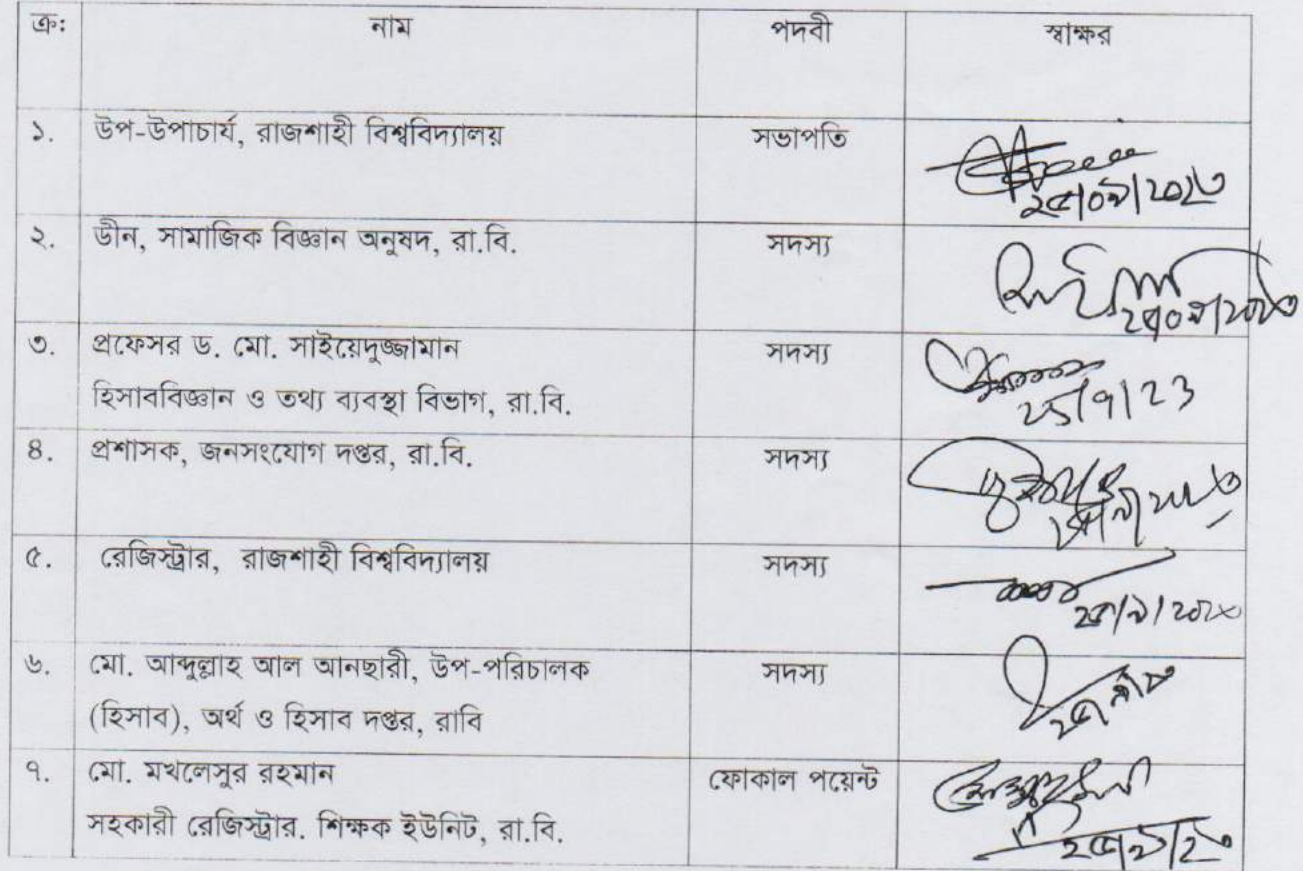 ক্র: নাম পদবী স্বাক্ষর
১. উপ-উপাচার্য, রাজশাহী বিশ্ববিদ্যালয় সভাপতি
২৫/০৯/২০২৩
২. ডীন, সামাজিক বিজ্ঞান অনুষদ, রা.বি. সদস্য
২৫/০৯/২০২৩
৩. প্রফেসর ড. মো. সাইয়েদুজ্জামান সদস্য
হিসাববিজ্ঞান ও তথ্য ব্যবস্থা বিভাগ, রা.বি.
25/9/23
৪. প্রশাসক, জনসংযোগ দপ্তর, রা.বি. সদস্য
৫. রেজিস্ট্রার, রাজশাহী বিশ্ববিদ্যালয় সদস্য
৬. মো. আব্দুল্লাহ আল আনছারী, উপ-পরিচালক সদস্য
(হিসাব), অর্থ ও হিসাব দপ্তর, রাবি
৭. মো. মখলেসুর রহমান ফোকাল পয়েন্ট
সহকারী রেজিস্ট্রার. শিক্ষক ইউনিট, রা.বি.
২৫/৯/২৩